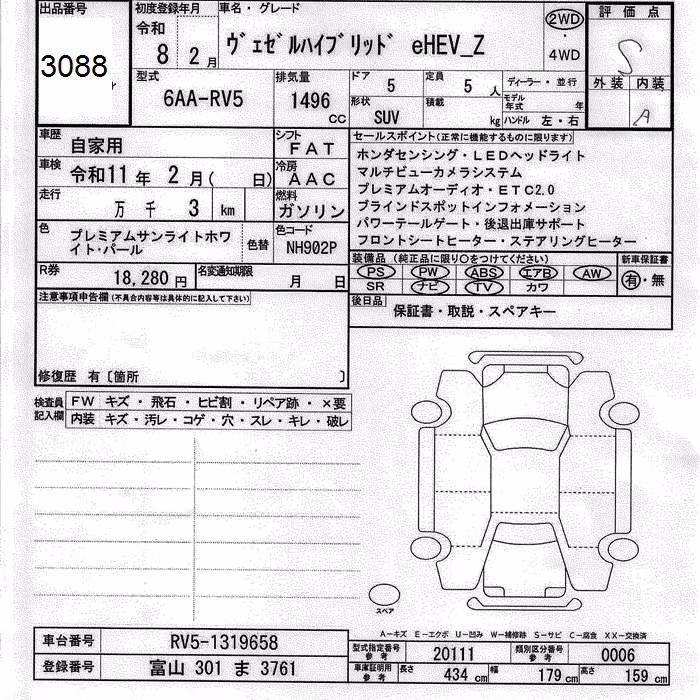 出品番号
3088
初度登録年月
令和
8 2 月
車名・グレード
ヴェゼルハイブリッド eHEV_Z
2WD
・
4WD
評価点
S
外装 内装
A
型式
6AA-RV5
排気量
1496 CC
ドア
5
定員
5 人
ディーラー・並行
形状
SUV
積載
kg
モデル年式 年
ハンドル 左・右
車歴
自家用
シフト
FAT
車検
令和11年 2月( 日)
冷房
AAC
走行
万 千 3 km
燃料
ガソリン
色
プレミアムサンライトホワイト・パール
色替
色コード
NH902P
R券
18,280 円
名変通知期限
月 日
セールスポイント(正常に機能するものに限ります)
ホンダセンシング・LEDヘッドライト
マルチビューカメラシステム
プレミアムオーディオ・ETC2.0
ブラインドスポットインフォメーション
パワーテールゲート・後退出庫サポート
フロントシートヒーター・ステアリングヒーター
装備品 (純正品に限り○をつけてください)
新車保証書
PS PW ABS エアB AW
SR ナビ TV カワ
有・無
後日品
保証書・取説・スペアキー
注意事項申告欄(不具合内容等は具体的に記入して下さい)
修復歴 有〔箇所 〕
検査員記入欄
FW キズ・飛石・ヒビ割・リペア跡・×要
内装 キズ・汚レ・コゲ・穴・スレ・キレ・破レ
スペア
A-キズ E-エクボ U-凹み W-補修跡 S-サビ C-腐食 XX-交換済
車台番号
RV5-1319658
登録番号
富山 301 ま 3761
型式指定番号参考
20111
類別区分番号参考
0006
車庫証明用参考
長さ 434 cm
幅 179 cm
高さ 159 cm